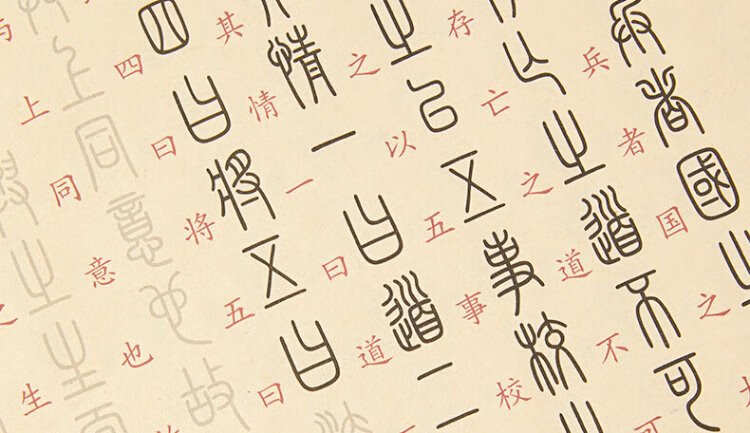 兵者國之
兵者国之
亡之道不可
存亡之道不可
之以五事校之
之以五事校
情一曰道二
其情一曰道
四曰將五曰
四曰将五曰
上同意也故
与上同意也
之生
之生